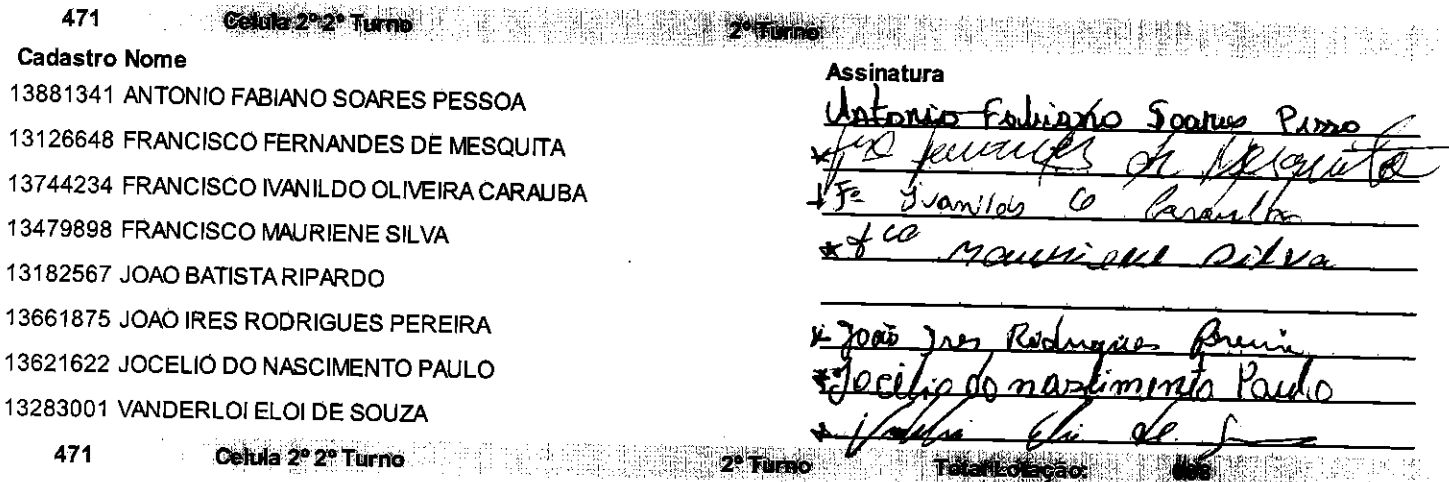 471 Celula 2º 2º Turno 2º Turno
Cadastro Nome Assinatura
13881341 ANTONIO FABIANO SOARES PESSOA Antonio Fabiano Soares Pesso
13126648 FRANCISCO FERNANDES DE MESQUITA Fernandes de Mesquita
13744234 FRANCISCO IVANILDO OLIVEIRA CARAUBA Fº Ivanildo O Carauba
13479898 FRANCISCO MAURIENE SILVA fco Mauriene Silva
13182567 JOAO BATISTA RIPARDO
13661875 JOAO IRES RODRIGUES PEREIRA João Ires Rodrigues Pereira
13621622 JOCELIO DO NASCIMENTO PAULO Jocélio do nascimento Paulo
13283001 VANDERLOI ELOI DE SOUZA
471 Celula 2º 2º Turno 2º Turno Total Lotação: